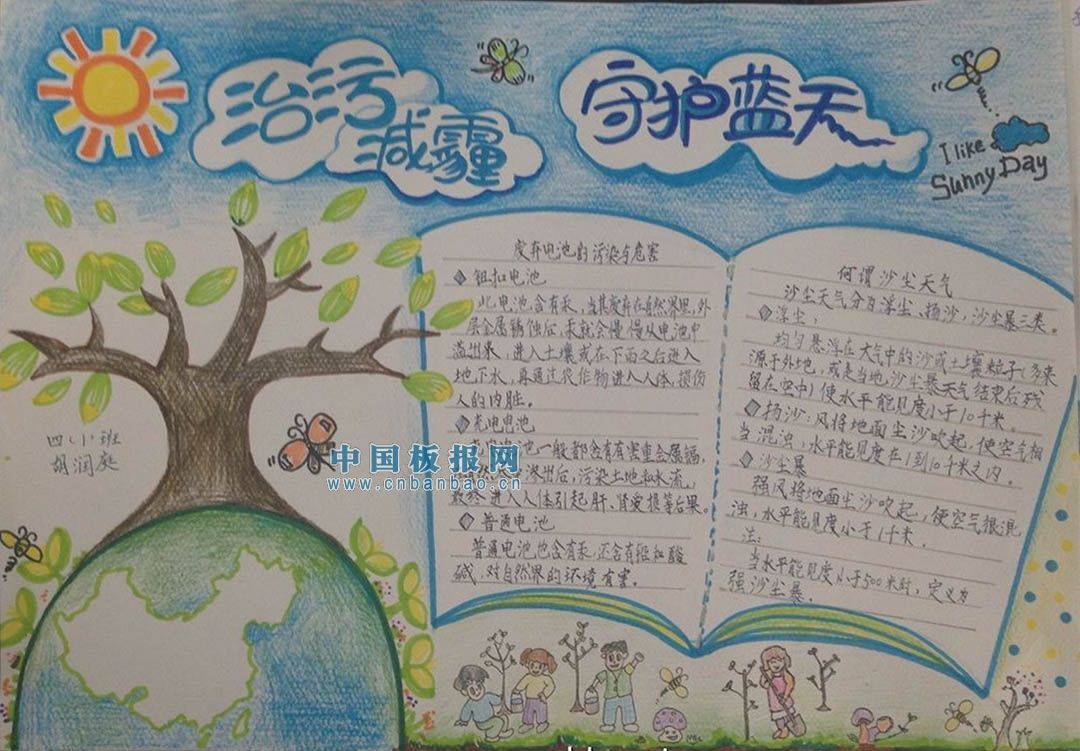 治污
减霾
守护蓝天
I like
Sunny Day
废弃电池的污染与危害
钮扣电池
此电池含有汞,当其废弃在自然界里,外
层金属锈蚀后,汞就会慢慢从电池中
溢出来,进入土壤或在下雨之后进入
地下水,再通过农作物进入人体,损伤
人的内脏。
充电电池
池一般都含有有害重金属镉,
渗出后,污染土地和水流,
最终进入人体引起肝、肾受损等后果。
普通电池
普通电池也含有汞,还含有铅和酸
碱,对自然界的环境有害。
何谓沙尘天气
沙尘天气分为浮尘、扬沙,沙尘暴三类。
浮尘:
均匀悬浮在大气中的沙或土壤粒子(多来
源于外地,或是当地沙尘暴天气结束后残
留在空中)使水平能见度小于10千米。
扬沙:风将地面尘沙吹起,使空气相
当混浊,水平能见度在1到10千米之内。
沙尘暴
强风将地面尘沙吹起,使空气很混
浊,水平能见度小于1千米.
注:
当水平能见度小于500米时,定义为
强沙尘暴.
四、小班
胡润庭
中国板报网
www.cnbanbao.cn